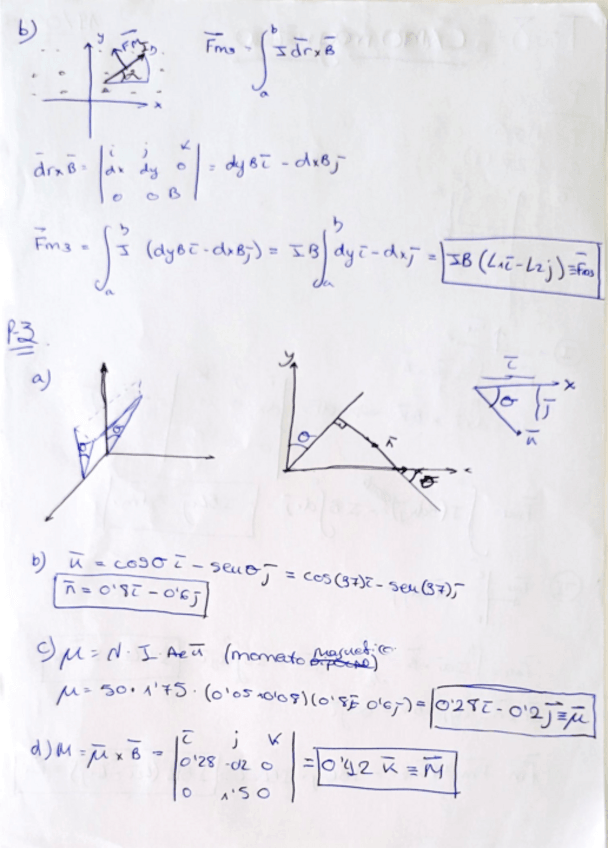 b)
y
x
F̄m3 = ∫ₐᵇ I d̄r x B̄
d̄r x B̄ = | i j k | dx dy 0 | 0 0 B | = dy B ī - dx B j̄
F̄m3 = ∫ₐᵇ I (dy B ī - dx B j̄) = I B ∫ₐᵇ dy ī - dx j̄ = I B (L1 ī - L2 j̄) ≡ F̄m3
P-3
a)
θ θ
y
θ
n̄
θ
ī
x
θ
j̄
n̄
b) n̄ = cosθ ī - senθ j̄ = cos(37) ī - sen(37) j̄
n̄ = 0'8 ī - 0'6 j̄
c) μ = N · I · A · n̄ (momento magnético)
μ = 50 · 1'75 · (0'05 · 0'08)(0'8 ī 0'6 j̄) = 0'28 ī - 0'2 j̄ ≡ μ̄
d) M = μ̄ x B̄ = | ī j k | 0'28 -0'2 0 | 0 1'5 0 | = 0'42 k̄ ≡ M̄